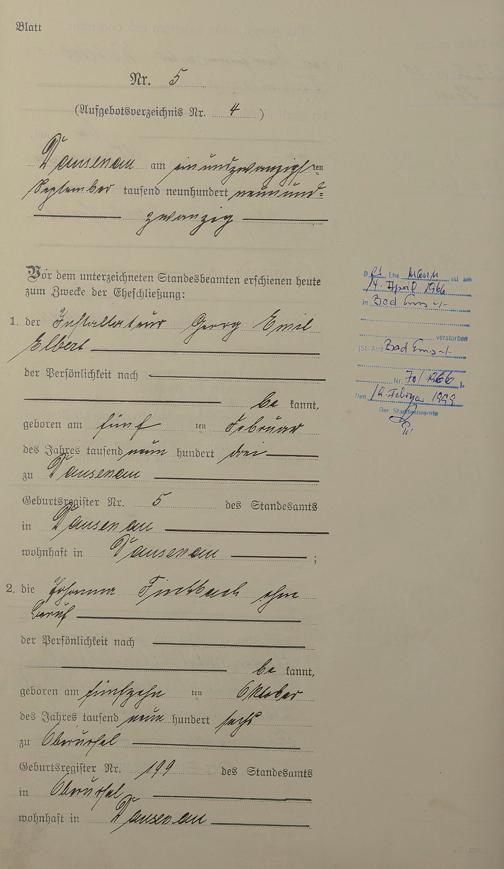 Blatt
Nr. 5
(Aufgebotsverzeichnis Nr. 4)
Dausenau am einundzwanzigsten
September tausend neunhundert neunund=
zwanzig
Vor dem unterzeichneten Standesbeamten erschienen heute
zum Zwecke der Eheschließung:
1. der Installateur Georg Emil
Elbert
der Persönlichkeit nach
be kannt,
geboren am fünf ten Februar
des Jahres tausend neun hundert drei
zu Dausenau
Geburtsregister Nr. 5 des Standesamts
in Dausenau
wohnhaft in Dausenau ;
2. die Johanna ohne
Beruf
der Persönlichkeit nach
be kannt,
geboren am fünfzehn ten Oktober
des Jahres tausend neun hundert sechs
zu Oberursel
Geburtsregister Nr. 199 des Standesamts
in Oberursel
wohnhaft in Dausenau
Ehe Mann ist am
14. April 1966
in Bad Ems
verstorben
(St. Amt Bad Ems
Nr. 70/1966)
Den Februar 1999
Der Standesbeamte